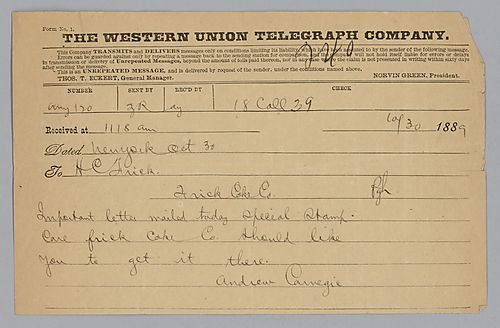 Form No. 1.
THE WESTERN UNION TELEGRAPH COMPANY.
This Company TRANSMITS and DELIVERS messages only on conditions limiting its liability, which have been assented to by the sender of the following message.
Errors can be guarded against only by repeating a message back to the sending station for comparison, and the company will not hold itself liable for errors or delays
in transmission or delivery of Unrepeated Messages, beyond the amount of tolls paid thereon, nor in any case where the claim is not presented in writing within sixty days
after sending the message.
This is an UNREPEATED MESSAGE, and is delivered by request of the sender, under the conditions named above.
THOS. T. ECKERT, General Manager. NORVIN GREEN, President.
NUMBER SENT BY REC'D BY CHECK
120 18 Coll 39
Received at 1118 am 10/30 1889
Dated Newyork Oct 30
To H C Frick.
Frick Coke Co. Pgh
Important letter mailed today special stamp.
Care frick Coke Co. should like
you to get it there.
Andrew Carnegie